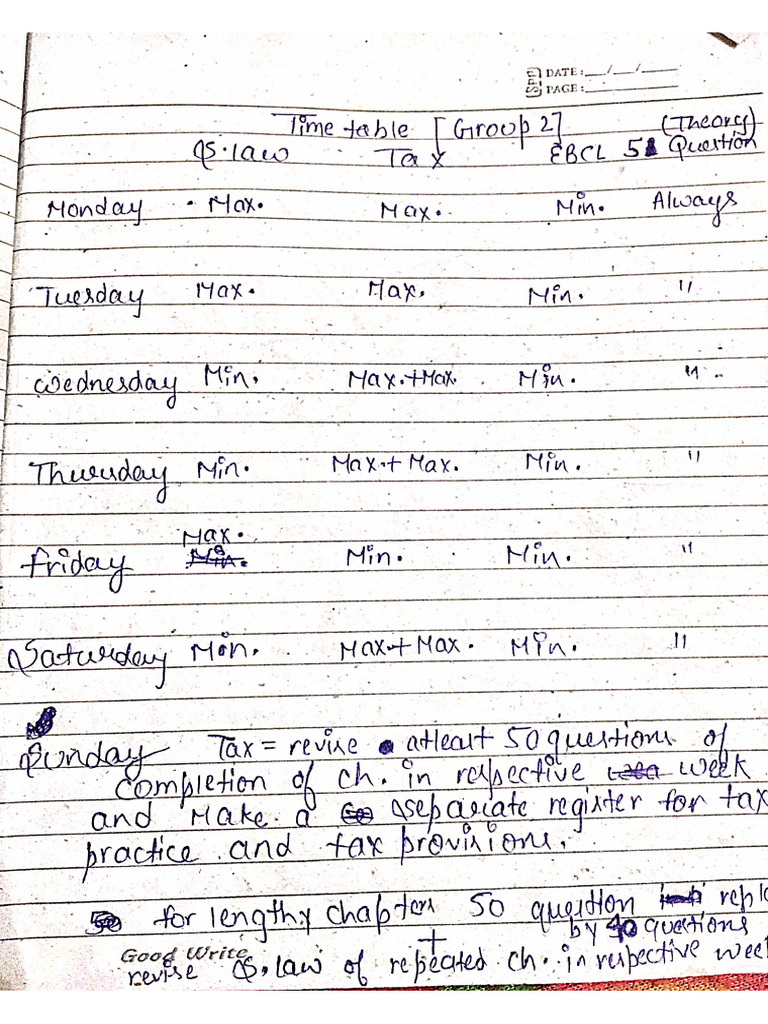 DATE: __/__/____
PAGE:
Time table [Group 2] (Theory)
S.law Tax EBCL 5 Question
Monday Max. Max. Min. Always
Tuesday Max. Max. Min. "
Wednesday Min. Max.+Max. Min. "
Thursday Min. Max.+ Max. Min. "
Max.
Friday Min. Min. "
Saturday Min. Max.+ Max. Min. "
Sunday Tax = revise atleast 50 questions of
completion of ch. in respective week
and Make a separate register for tax
practice and tax provisions.
for lengthy chapters 50 question
by questions
+
Good Write
revise S.law of repeated ch. in respective